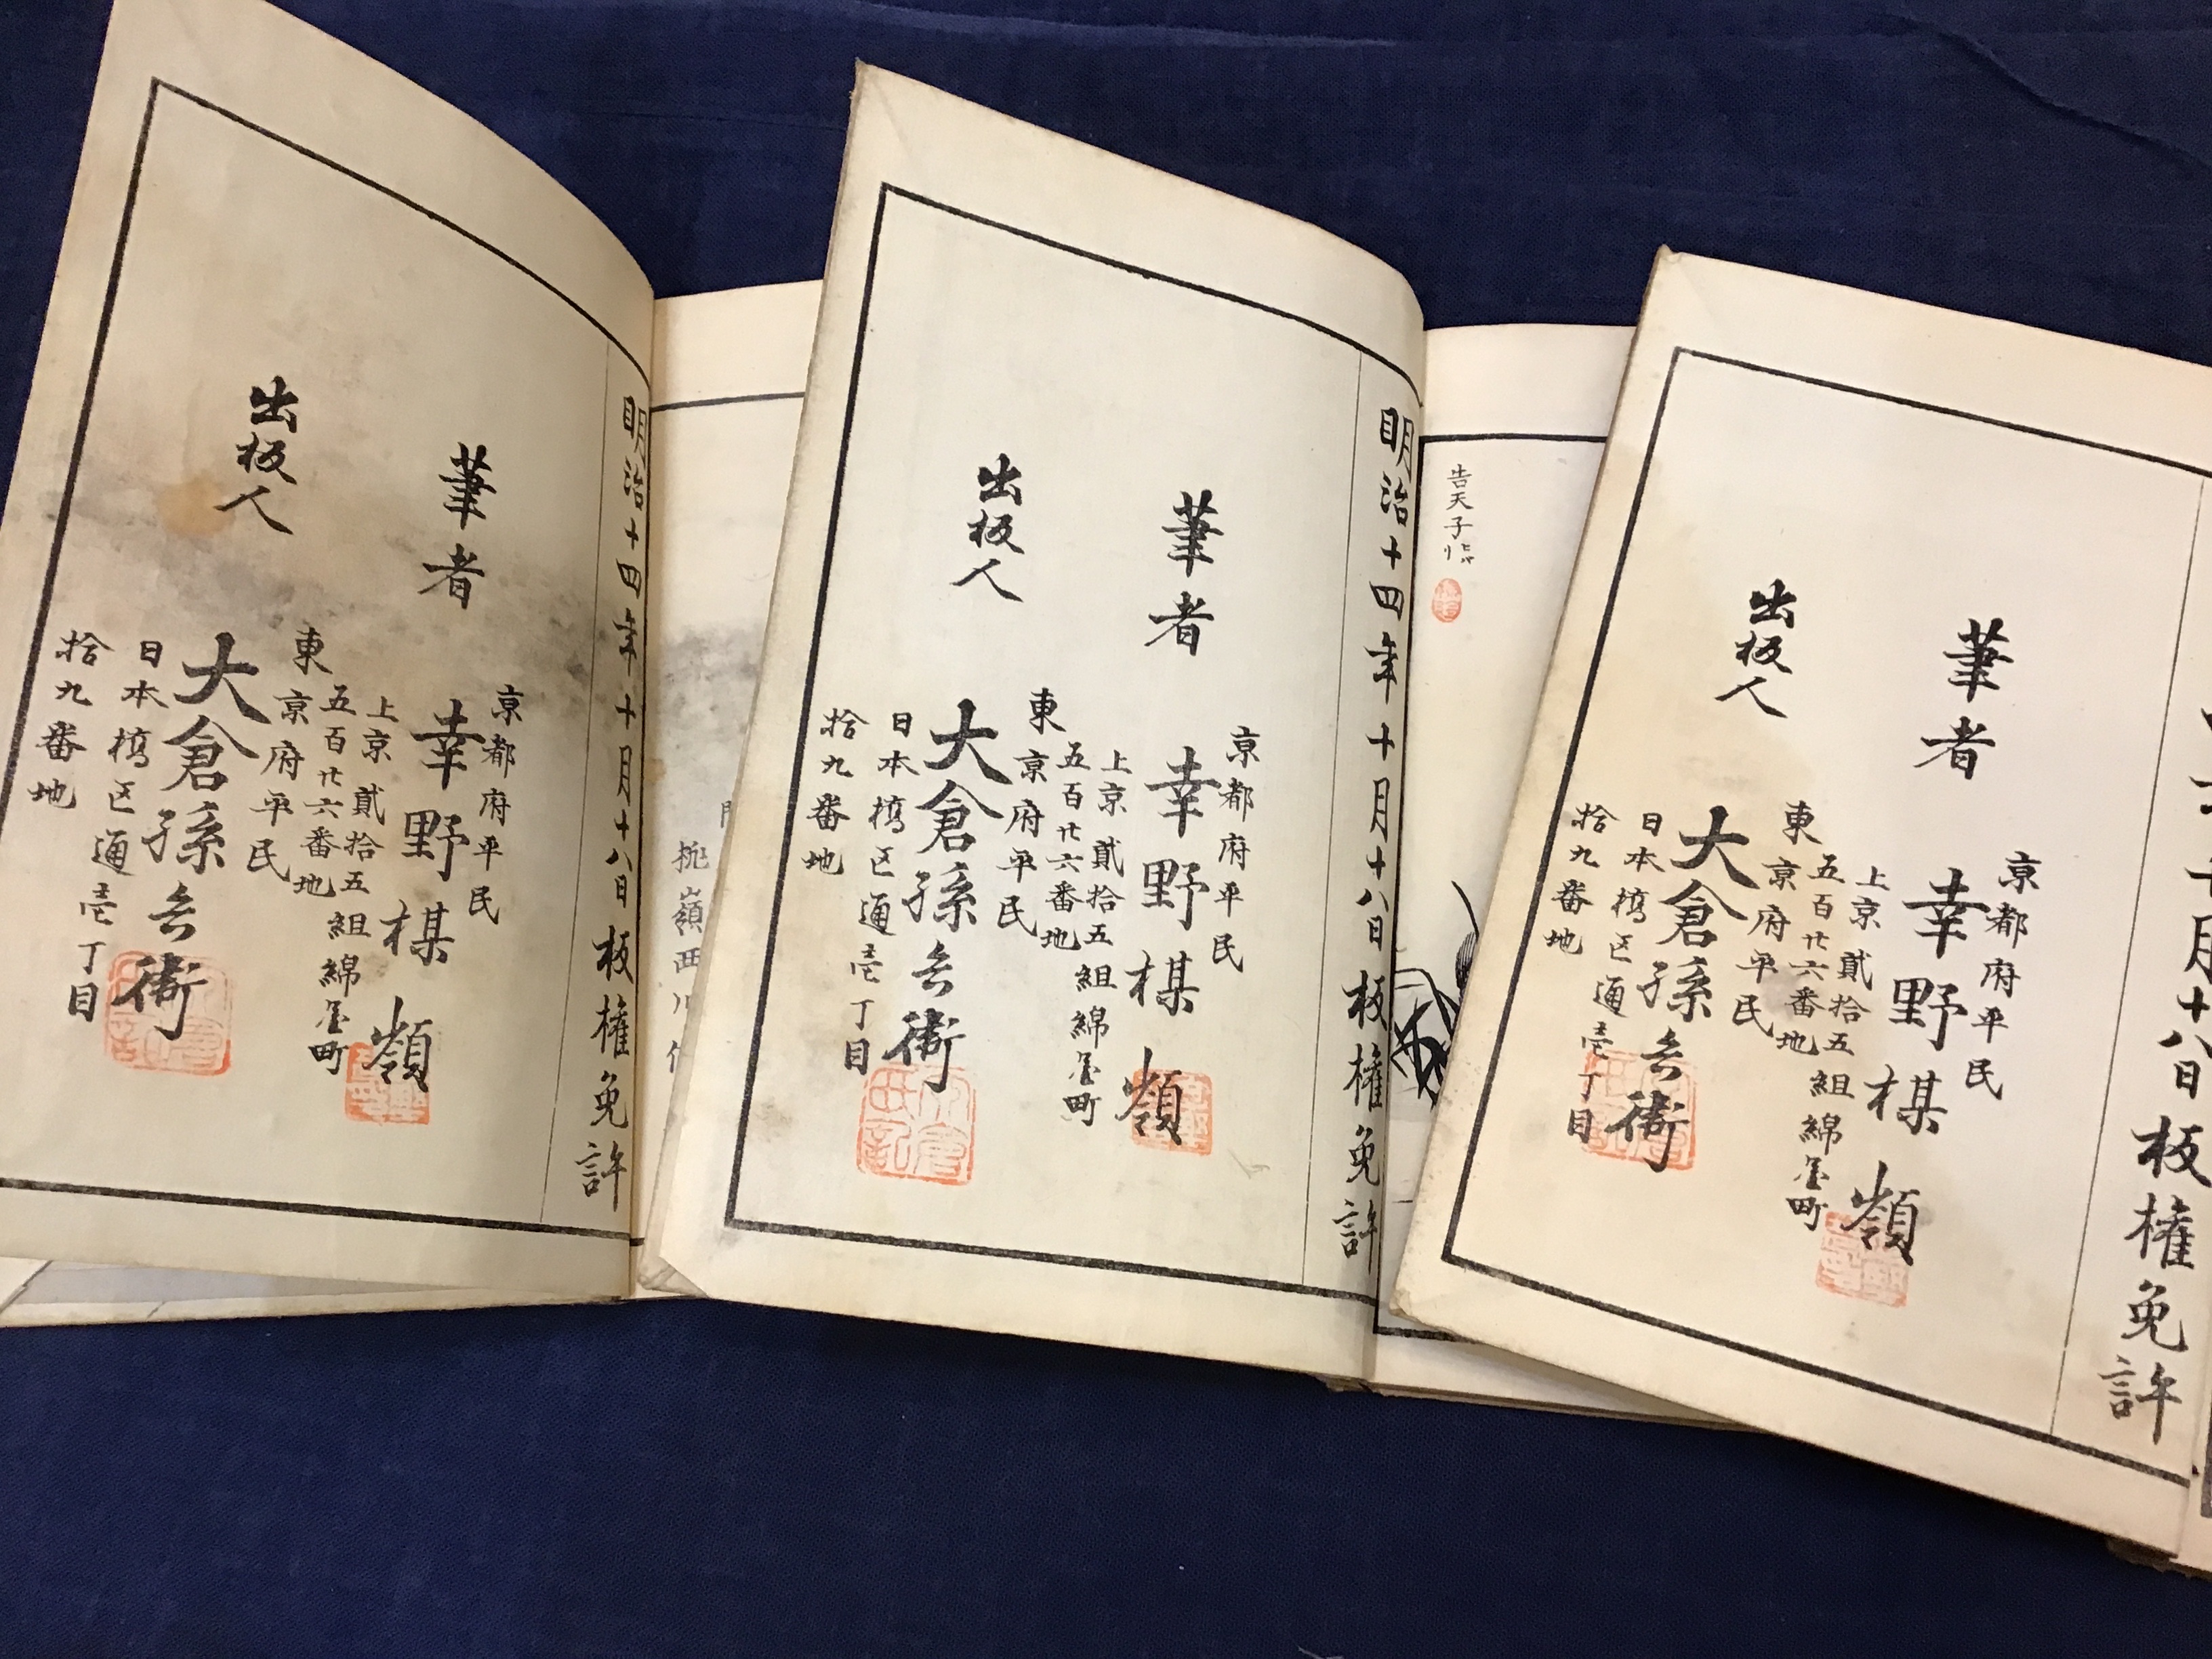 明治十四年十月十八日板権免許
筆者
京都府平民
幸野楳嶺
上京貳拾五組綿屋町
五百廿六番地
出板人
東京府平民
大倉孫兵衛
日本橋区通壱丁目
拾九番地
桃嶺西川
明治十四年十月十八日板権免許
筆者
京都府平民
幸野楳嶺
上京貳拾五組綿屋町
五百廿六番地
出板人
東京府平民
大倉孫兵衛
日本橋区通壱丁目
拾九番地
告天子
十月十八日板権免許
筆者
京都府平民
幸野楳嶺
上京貳拾五組綿屋町
五百廿六番地
出板人
東京府平民
大倉孫兵衛
日本橋区通壱丁目
拾九番地